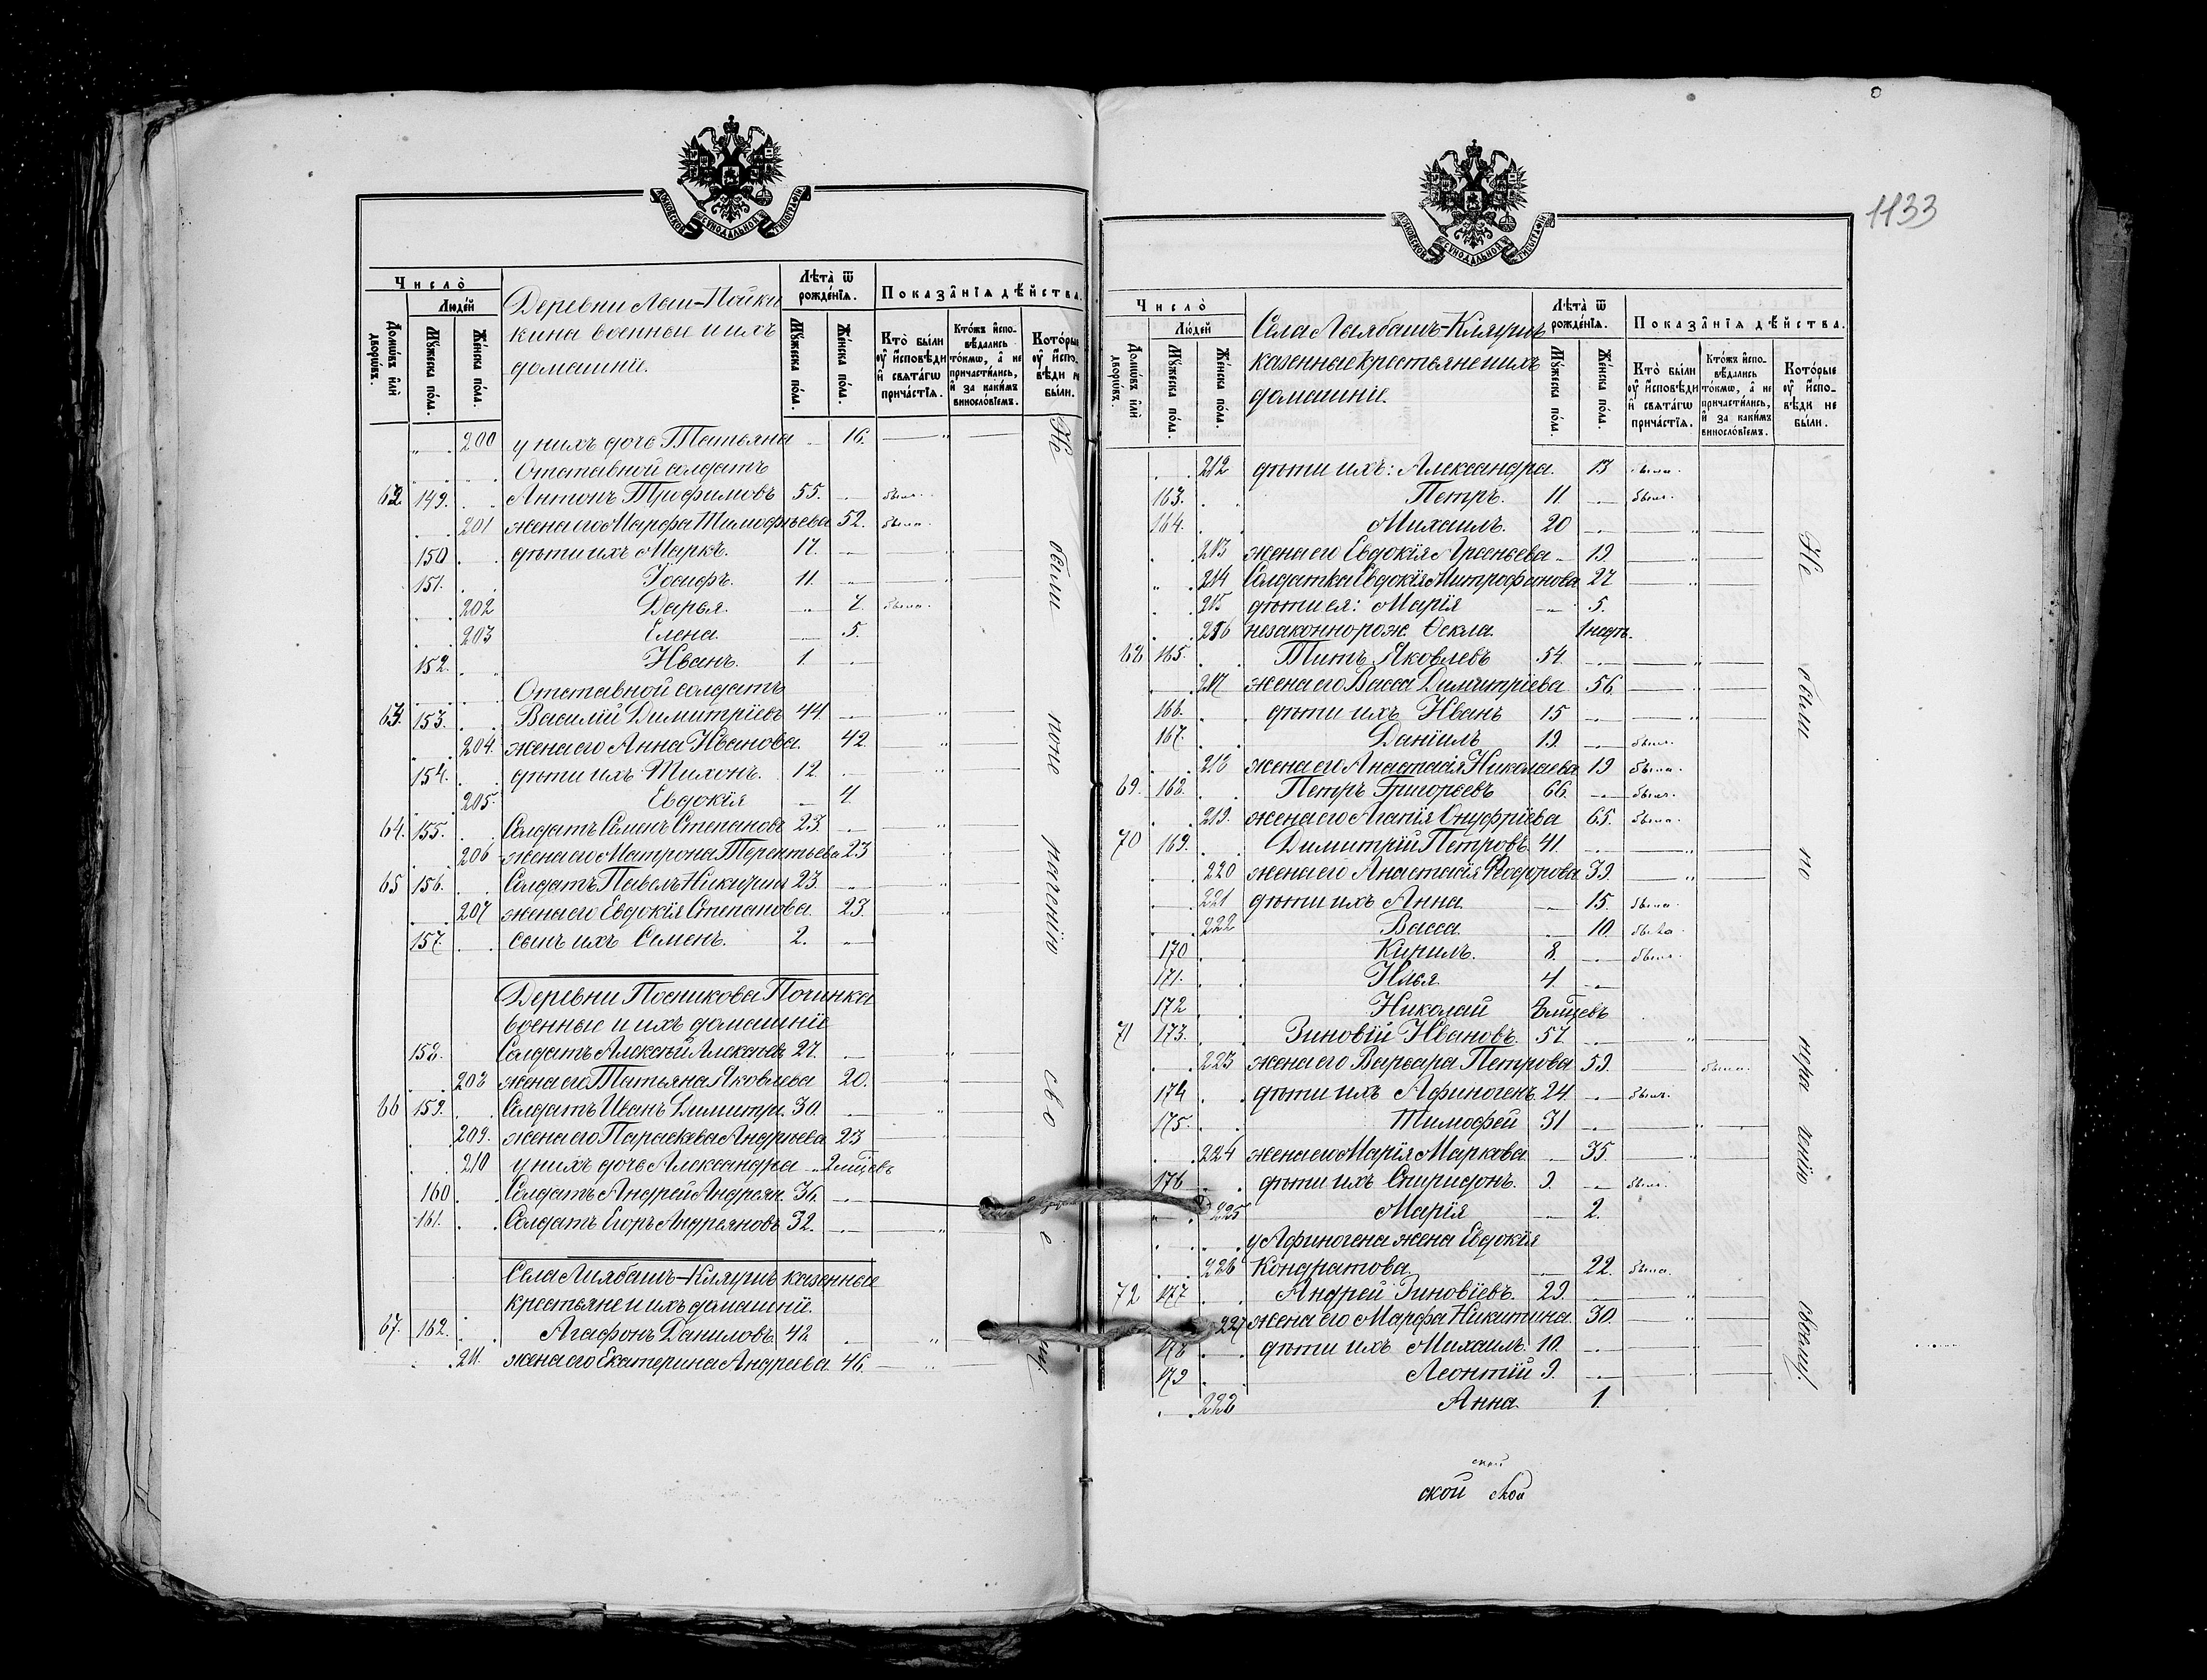 МОСКОВСКОЙ СУНОДАЛЬНОЙ ТИПОГРАФІИ
Число̀
Люде́й
Домѡ́въ и҆лѝ дворѡ́въ.
Мꙋ́жеска по́ла.
Же́нска по́ла.
Деревни Лаш-Пойки
кина военные и ихъ
домашніе.
Лѣта̀ ѿ рожде́нїѧ.
Мꙋ́жеска по́ла.
Же́нска по́ла.
Показа̂нїѧ дѣ́йства.
Кто̀ бы́ли оу҆ и҆сповѣди и҆ свѧта́гѡ прича́стїѧ.
Кто́жъ и҆спо-вѣдались то́кмѡ, а҆ не причасти́лись, и҆ за каки́мъ винослѡ́вїемъ.
Кото́рые оу҆ и҆спо-вѣди не были.
200 у нихъ дочь Татьяна - 16.
Отставной солдатъ
62. 149. Антонъ Трофимовъ 55. - былъ.
201 жена его Марфа Тимофѣева 52. была.
150 дѣти ихъ Маркъ. 17. -
151. Іосифъ. 11. -
202 Дарья. - 7. была.
203 Елена. - 5.
152. Иванъ. 1. -
Отставной солдатъ
63. 153. Василій Димитріевъ 44. -
204. жена его Анна Иванова. 42.
154. дѣти ихъ Тихонъ. 12. -
205. Евдокія - 4.
64. 155. Солдатъ Семенъ Степановъ 23. -
206 жена его Матрона Терентьева 23
65 156. Солдатъ Павелъ Никитинъ 23. -
207 жена его Евдокія Степанова. 23.
157. сынъ ихъ Семенъ. 2. -
Деревни Посникова Починка
военные и ихъ домашніе
158. Солдатъ Алексѣй Алексѣевъ 27. -
208 жена его Татьяна Яковлева 20.
66 159. Солдатъ Иванъ Димитри. 30. -
209. жена его Параскева Андреева 23
210 у нихъ дочь Александра - 2 мѣсцевъ
160 Солдатъ Андрей Андреян. 36. -
161. Солдатъ Егоръ Андрьяновъ 32. -
Села Ляябашъ-Кляушъ казенные
крестьяне и ихъ домашніе.
67. 162. Агафонъ Даниловъ. 42 -
211. жена его Екатерина Андреева. 46.
Не были по не раченію своему.
1133
МОСКОВСКОЙ СУНОДАЛЬНОЙ ТИПОГРАФІИ
Число̀
Люде́й
Домѡ́въ и҆лѝ дворѡ́въ.
Мꙋ́жеска по́ла.
Же́нска по́ла.
Села Ляябашъ-Кляушъ
казенные крестьяне и ихъ
домашніе.
Лѣта̀ ѿ рожде́нїѧ.
Мꙋ́жеска по́ла.
Же́нска по́ла.
Показа̂нїѧ дѣ́йства.
Кто̀ бы́ли оу҆ и҆сповѣди и҆ свѧта́гѡ прича́стїѧ.
Кто́жъ и҆спо-вѣдались то́кмѡ, а҆ не причасти́лись, и҆ за каки́мъ винослѡ́вїемъ.
Кото́рые оу҆ и҆спо-вѣди не были.
212 дѣти ихъ: Александра. 13 была.
163. Петръ. 11 - былъ.
164. Михаилъ. 20 -
213 жена его Евдокія Арсеньева - 19.
214 Солдатка Евдокія Митрофанова 27
215 дѣти ея: Марія - 5.
216 незаконнорож. Ѳекла. 1 недѣ.
68 165. Титъ Яковлевъ 54. -
217 жена его Васса Димитріева. 56.
166. дѣти ихъ Иванъ 15 -
167. Даніилъ 19. - былъ.
218 жена его Анастасія Николаева. 19 была.
69. 168. Петръ Григорьевъ 66. - былъ.
219. жена его Агапія Онуфріева 65. была.
70 169. Димитрій Петровъ. 41 -
220 жена его Анастасія Ѳеодорова 39.
221 дѣти ихъ Анна. - 15. была.
222 Васса. - 10. была.
170 Кирилъ. 8. - былъ.
171. Илья. 4. -
172 Николай 4 мѣсцевъ
71 173. Зиновій Ивановъ. 57. -
223 жена его Варвара Петрова 59. была.
174 дѣти ихъ Афиногенъ 24. - былъ.
175. Тимофей 31 -
224 жена его Марія Маркова. - 35.
176 дѣти ихъ Спиридонъ. 9. - былъ.
225 Марія - 2.
у Афиногена жена Евдокія
226 Кондратова. - 22. была.
72 177 Андрей Зиновіевъ. 29. -
227 жена его Марфа Никитина. 30.
178 дѣти ихъ Михаилъ. 10. -
179 Леонтій 9. -
228 Анна. 1.
Не были по нераченію своему.
ской
ской ской